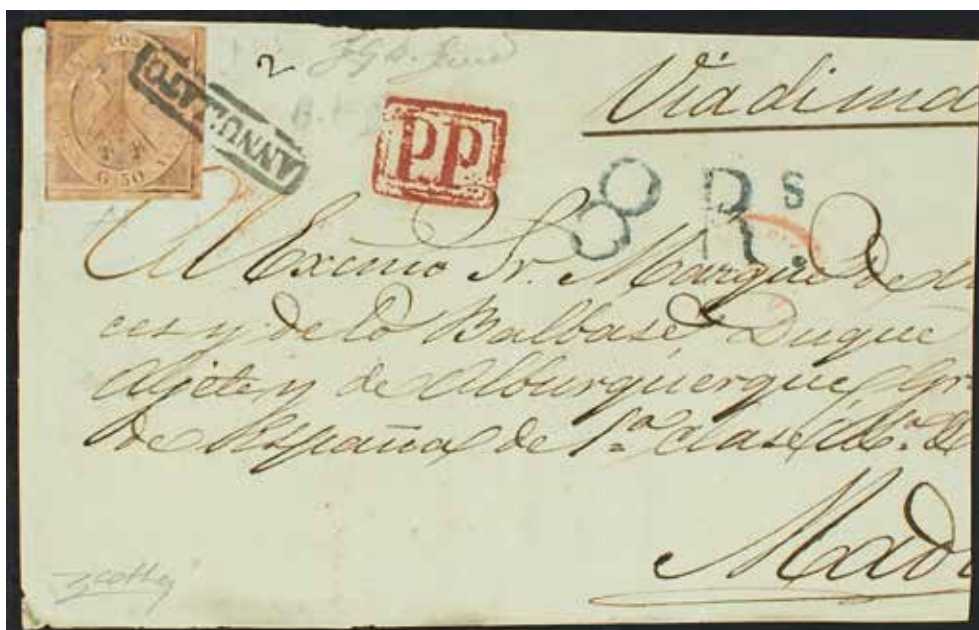 POS
G 50
ANNULATO
2
P.P.
Via di ma
8 Rs.
Al Exmo Sr. Marques de
ces y de los Balbases Duque
Algete y de Alburquerque Gr
de España de 1ª clase
Mad